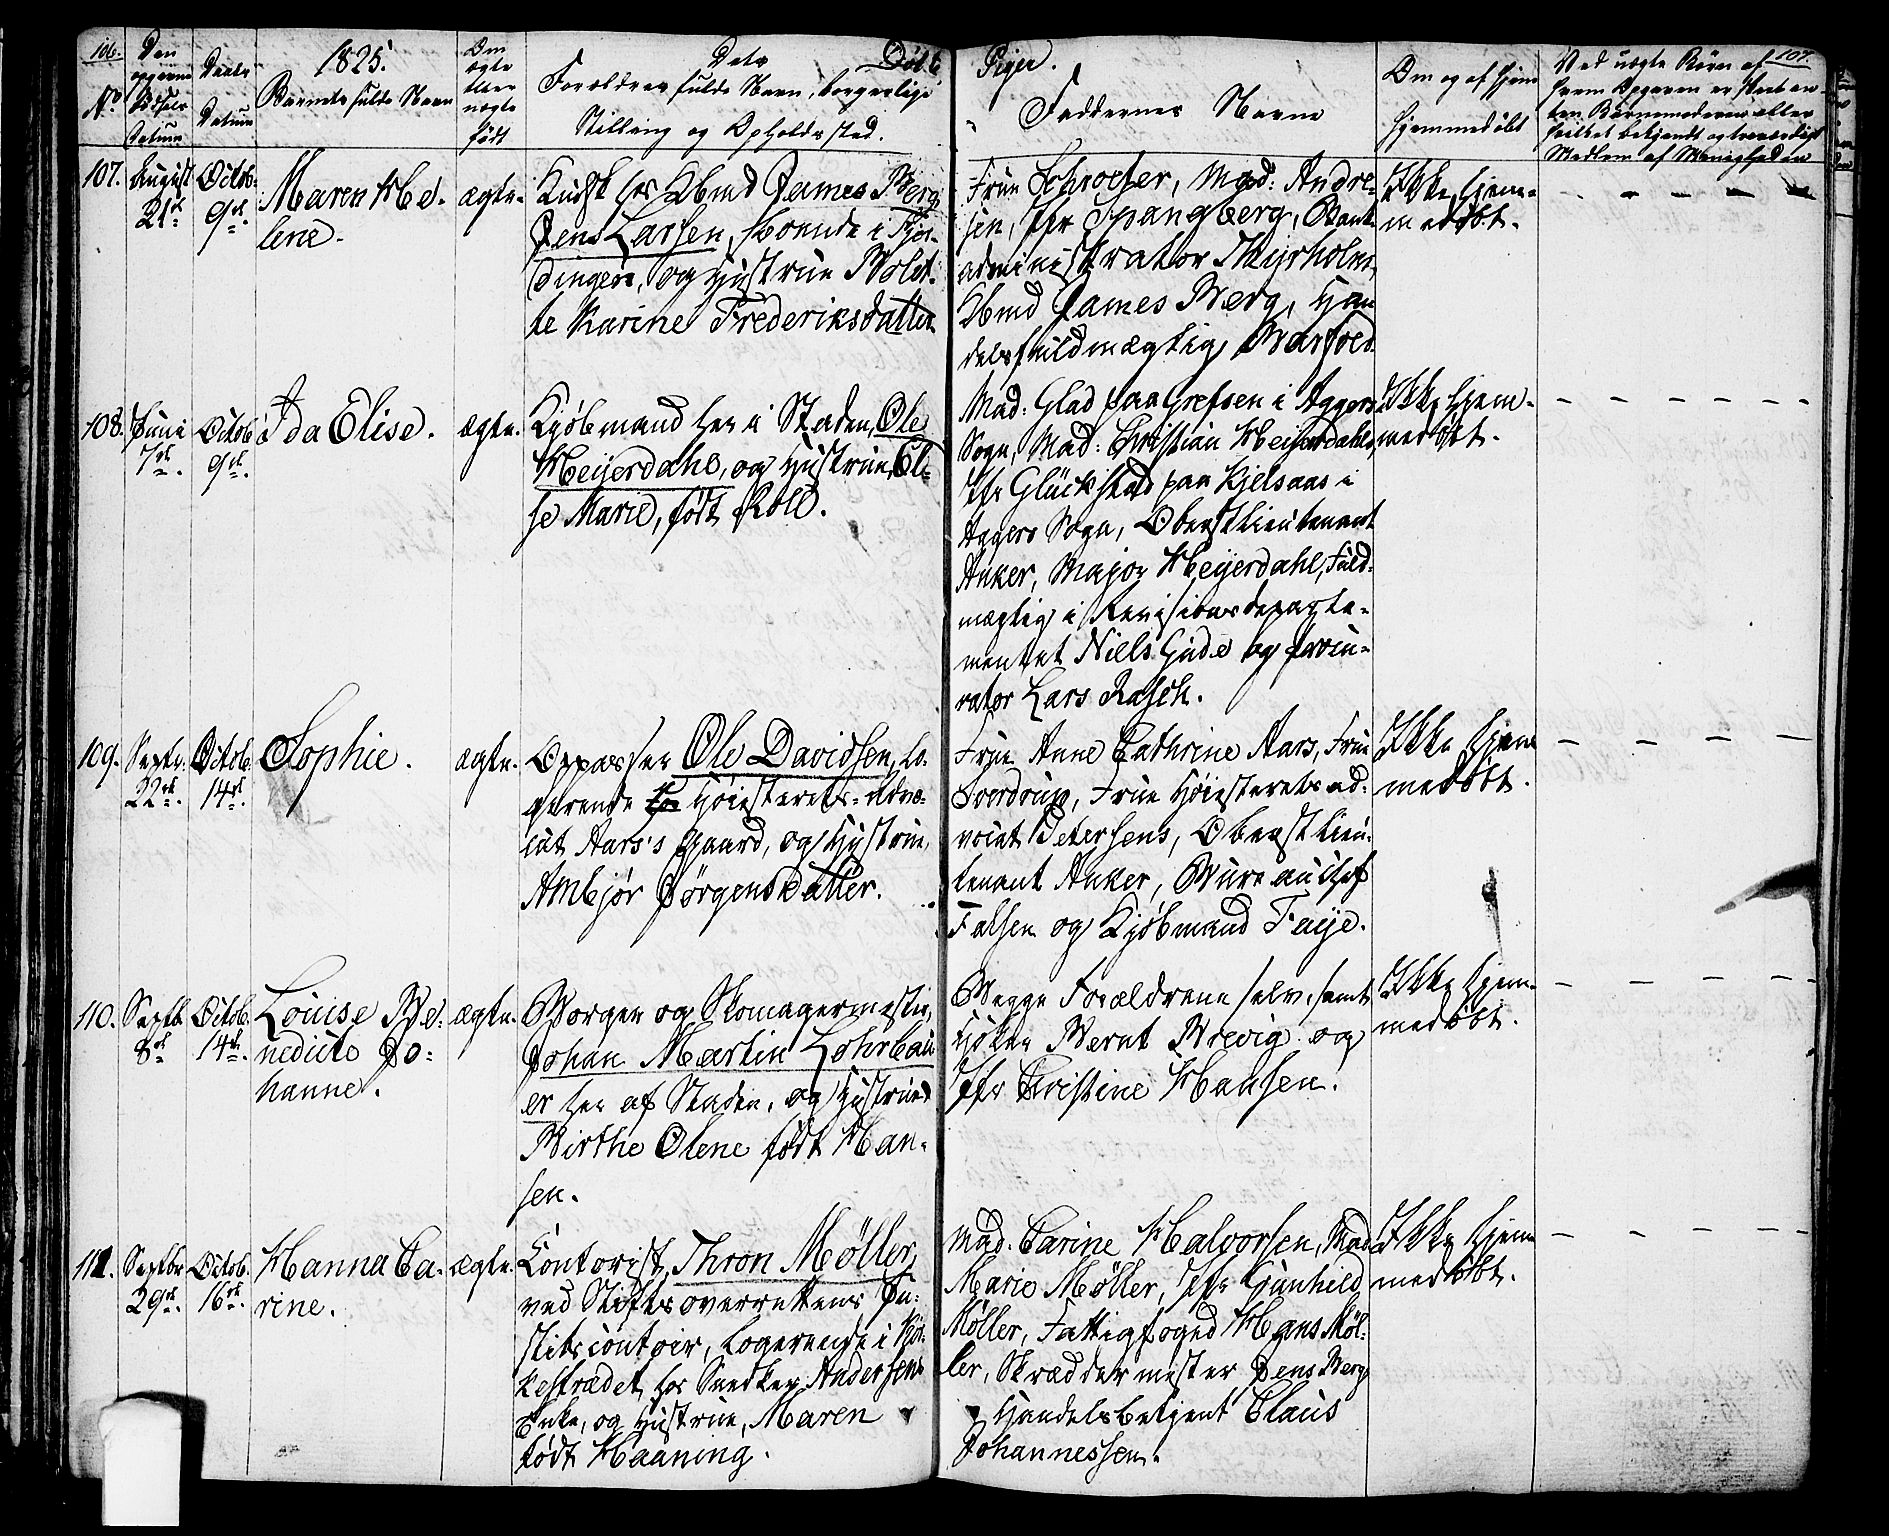 106.
1825.
Døbte
Piger.
107.
No
Den opgivne Fødsels Datum
Daabs Datum
Barnets fulde Navn
Om ægte eller uægte født
Dets Forældres fulde Navn, borgerlige
Stilling og Opholdssted.
Faddernes Navne
Om og af hjem
hjemmedøbt
Ved uægte Børn af
hvem Opgaven er skeet en-
ten Barnemoderen eller
hvilket bekjendt og troværdigt
Medlem af Menigheden
107.
August
21de
Octob:
9de.
Maren He-
lene.
ægte.
Kudsk hos Kbmd James Berg
Jens Larsen, boende i Fjer-
dingen, og Hustrue Bolet-
te Karine Frederiksdatter
Frue Schroeter, Mad: Andre-
sen, Jfr Spangberg, Bank-
administrator Thyrholm,
Kbmd James Berg, Han-
delsfuldmægtig Warfoed.
Ikke hjem-
medøbt.
108.
Juni
7de.
Octob
9de.
Ida Elise.
ægte.
Kjøbmand her i Staden, Ole
Heyerdahl, og Hustrue, El-
se Marie, født Roll.
Mad: Glad paa Grefsen i Aggers
Sogn, Mad: Christian Heyerdahl,
Jfr Glückstad paa Kjelsaas i
Aggers Sogn, Oberstlieutenant
Anker, Major Heyerdahl, Fuld-
mægtig i Revisionsdeparte-
mentet Niels Gude og Procu-
rator Lars Rasch.
Ikke hjem-
medøbt.
109.
Septr.
22de.
Octob.
14de.
Sophie.
ægte.
Oppasser Ole Davidsen, lo-
gerende hos Høiesterets-Advo-
cat Aars's Gaard, og Hustrue,
Ambjør Jörgensdatter.
Frue Anne Cathrine Aars, Frue
Sverdrup, Frue Høiesteretsad-
vocat Petersens, Oberstlieu-
tenant Anker, Bureauchef
Falsen og Kjøbmand Faye.
Ikke hjem
medøbt.
110.
Septb.
8de
Octob.
14de.
Louise Be-
nedicte Jo-
hanne.
ægte.
Borger og Skomagermester,
Johan Martin Lohrbau-
er her af Staden, og Hustrue
Birthe Olene født Han-
sen.
Begge Forældrene selv, samt
Høker Bernt Brevig og
Jfr Christine Hansen.
Ikke hjem-
medøbt.
111.
Septbr
29de.
Octob.
16de.
Hanna Ca-
rine.
ægte.
Contorist, Thron Møller,
ved Stiftsoverrettens Ju-
stitscontoir, logerende i
kestrædet, hos Snedker Andersens
Enke, og Hustrue, Maren
født Haaning.
Mad. Carine Halvorsen, Mad
Marie Møller, Jfr Gunhild
Møller, Fattigfoged Hans Møl-
ler, Skræddermester Jens Berg
Handelsbetjent Claus
Johannessen.
Ikke hjem
medøbt.